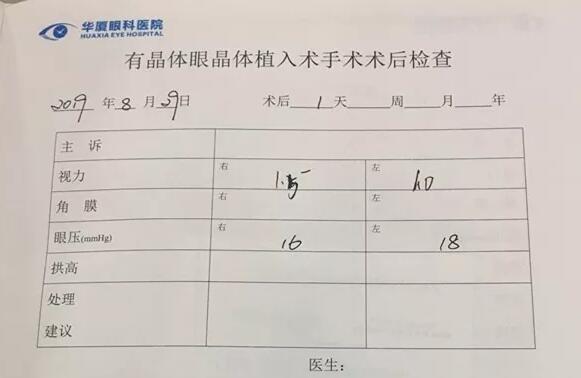 华厦眼科医院
HUAXIA EYE HOSPITAL
有晶体眼晶体植入术手术术后检查
2019 年 8 月 29 日 术后 1 天 周 月 年
主 诉
视力 右 左
角 膜 右 左
眼压(mmHg) 右 16 左 18
拱高
处理
建议
医生: